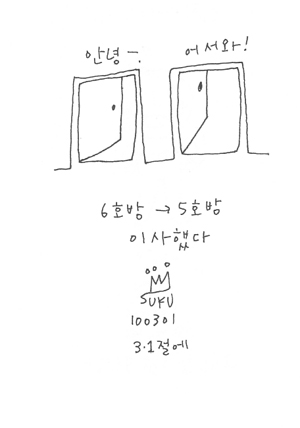 안녕-! 어서와!
6호방 → 5호방
이사했다
SUKU
100301
3·1절에